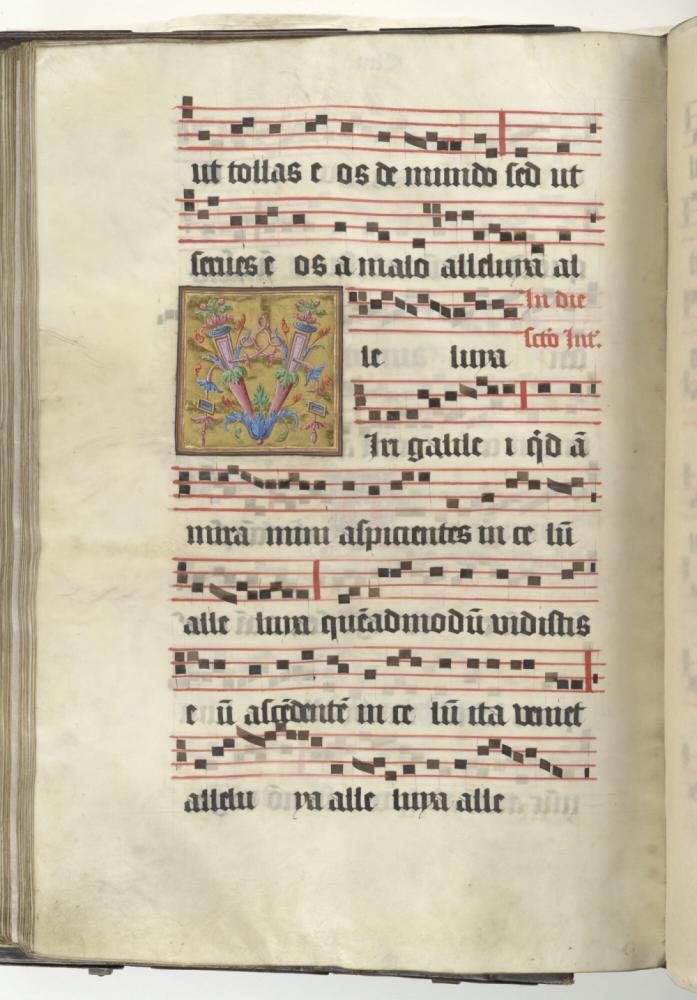 ut tollas e os de mundo sed ut
serues e os a malo alleluya al
In die
le luya
scto Int.
V
In galile i q̄d ā
mira mini aspicientes in ce lū
alle luya quēadmodū vidistis
e ū ascēdentē in ce lū ita veniet
allelu ya alle luya alle